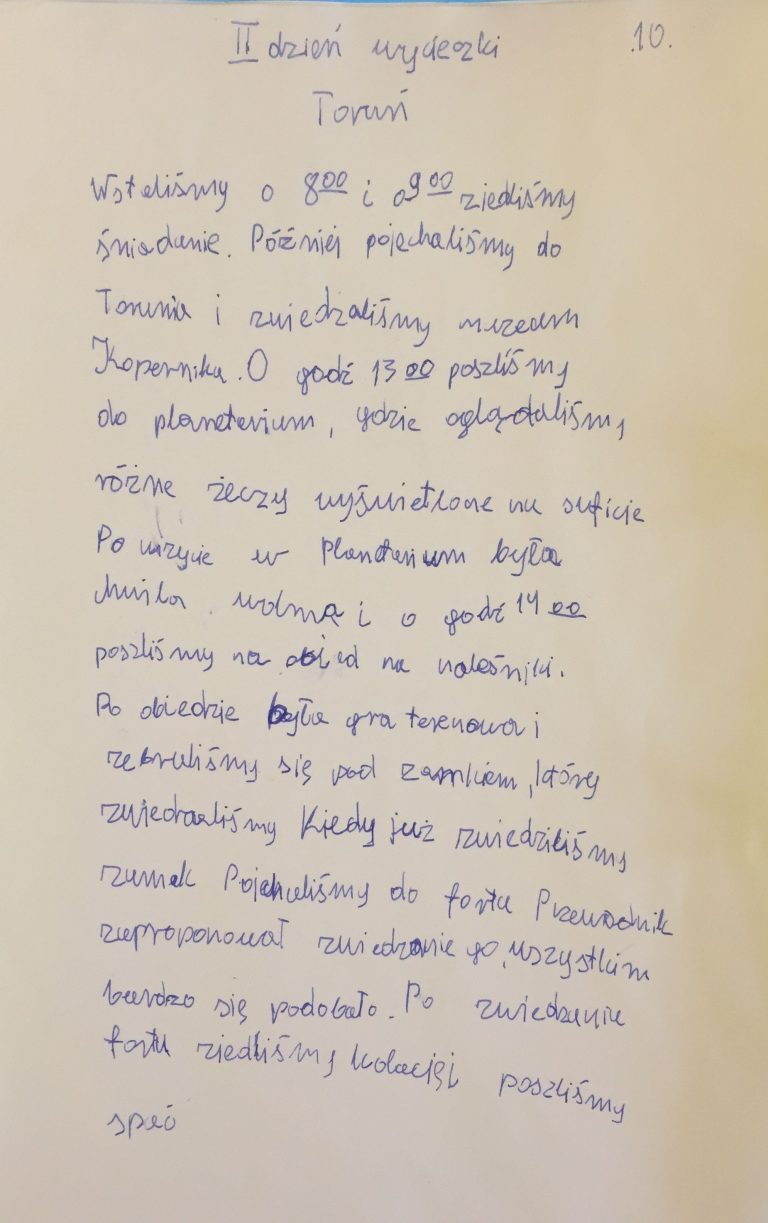 II dzień wycieczki 10.
Toruń
Wstaliśmy o 8 00 i o 9 00 ziedliśmy
śniadanie. Później pojechaliśmy do
Torunia i zwiedzaliśmy muzeum
Kopernika. O godź 13 00 poszliśmy
do planetarium, gdzie oglądaliśmy
różne żeczy wyświetlone na suficie
Po wizycie w Planetarium była
chwila wolna i o godź 14 00
poszliśmy na obiad na naleśniki.
Po obiedzie była gra terenowa i
zebraliśmy się pod zamkiem, który
zwiedzaliśmy Kiedy już zwiedziliśmy
zamek Pojechaliśmy do fortu Przewodnik
zaproponował zwiedzanie go, wszystkim
bardzo się podobało. Po zwiedzaniu
fortu ziedliśmy kolację i poszliśmy
spać